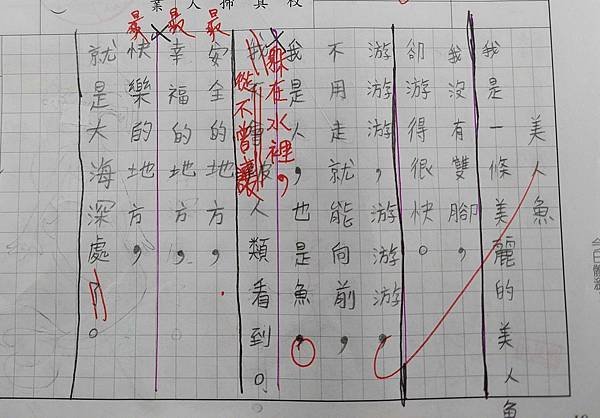 美人魚
我是一條美麗的美人魚
我沒有雙腳，
卻游得很快。
游游游，游游游，
不用走就能向前，
我是人，也是魚，
躲在水裡，
從不曾讓
我不會被人類看到。
最安全的地方，
最幸福的地方，
最快樂的地方，
就是大海深處。